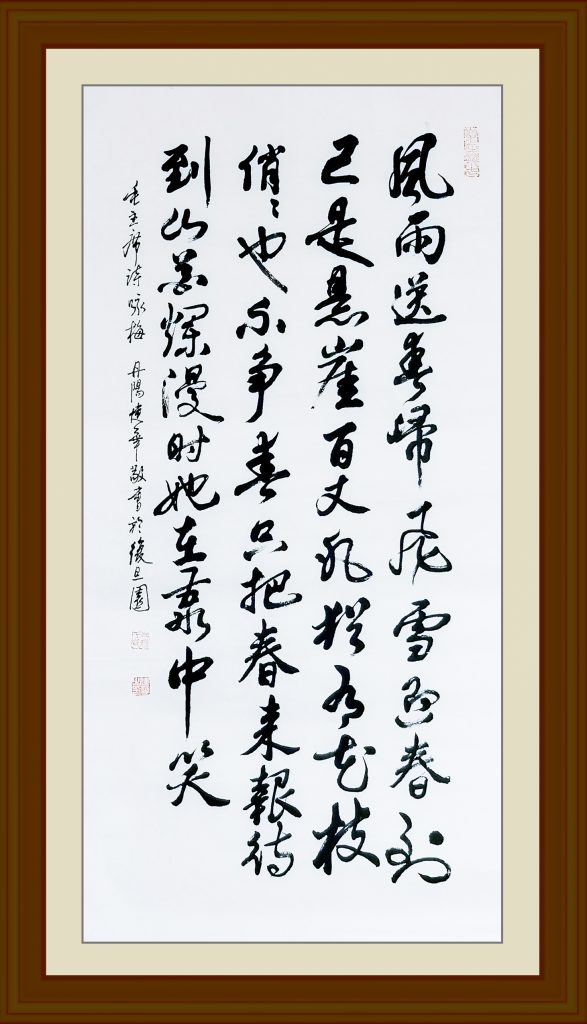 風雨送春歸飛雪迎春到
已是悬崖百丈冰猶有花枝
俏々也不争春只把春来報待
到山花爛漫时她在叢中笑
毛主席诗咏梅 丹陽華敬書於復旦園